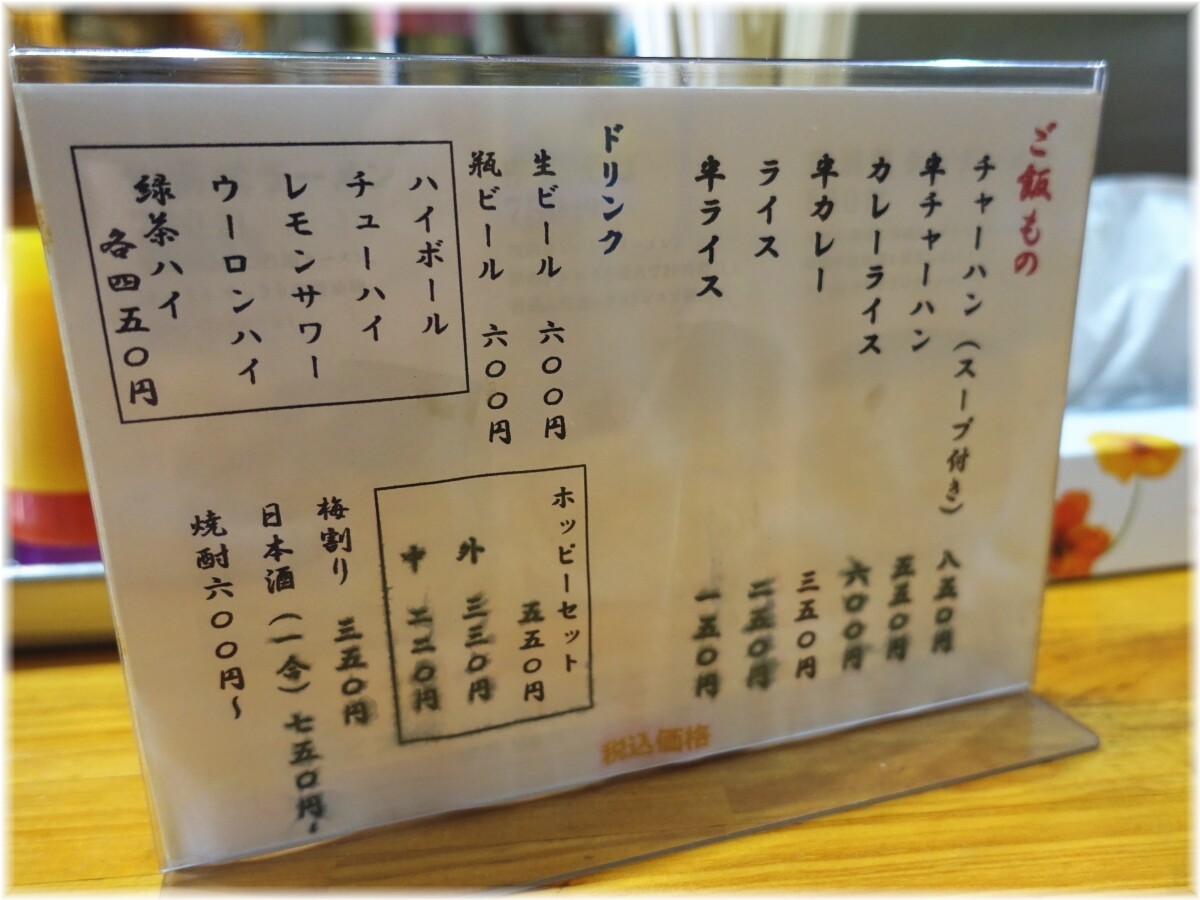 ご飯もの
チャーハン（スープ付き） 八五〇円
半チャーハン 五五〇円
カレーライス 六〇〇円
半カレー 三五〇円
ライス 二五〇円
半ライス 一五〇円
ドリンク
生ビール 六〇〇円
瓶ビール 六〇〇円
ハイボール
チューハイ
レモンサワー
ウーロンハイ
緑茶ハイ
各四五〇円
ホッピーセット
五五〇円
外 三三〇円
中 二二〇円
梅割り 三五〇円
日本酒（一合）七五〇円〜
焼酎六〇〇円〜
税込価格